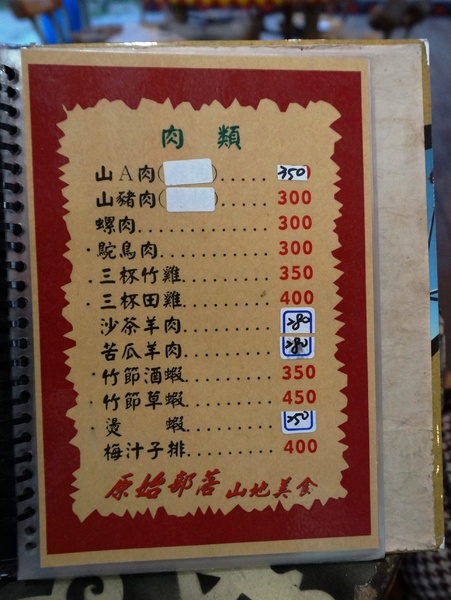 肉類
山A肉( )..... 350
山豬肉( )..... 300
螺肉............ 300
·鴕鳥肉.......... 300
·三杯竹雞........ 350
·三杯田雞........ 400
沙茶羊肉........ 280
苦瓜羊肉........ 280
·竹節酒蝦........ 350
·竹節草蝦........ 450
·燙 蝦........ 350
梅汁子排........ 400
原始部落 山地美食